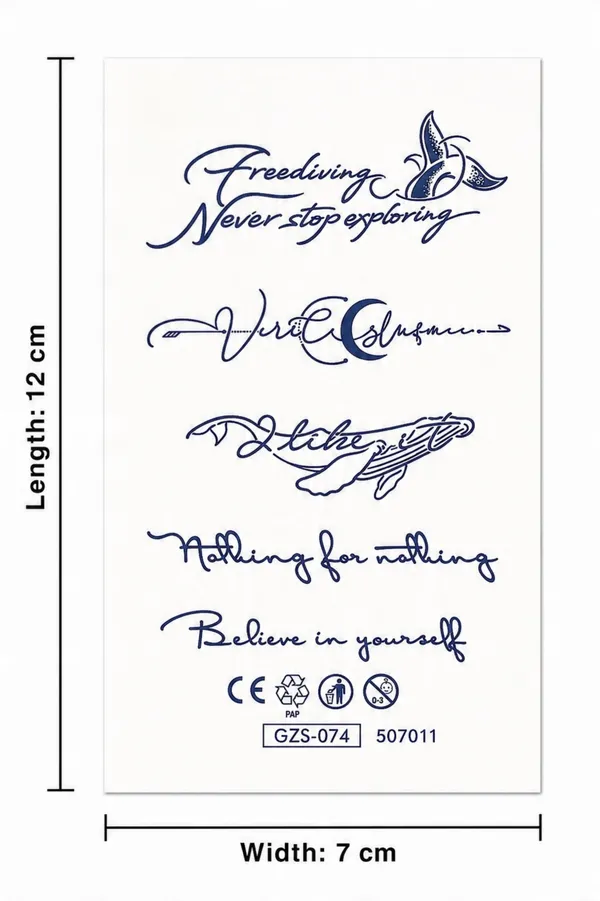 Length: 12 cm
Freediving
Never stop exploring
I like it
Nothing for nothing
Believe in yourself
CE
PAP
0-3
GZS-074 507011
Width: 7 cm